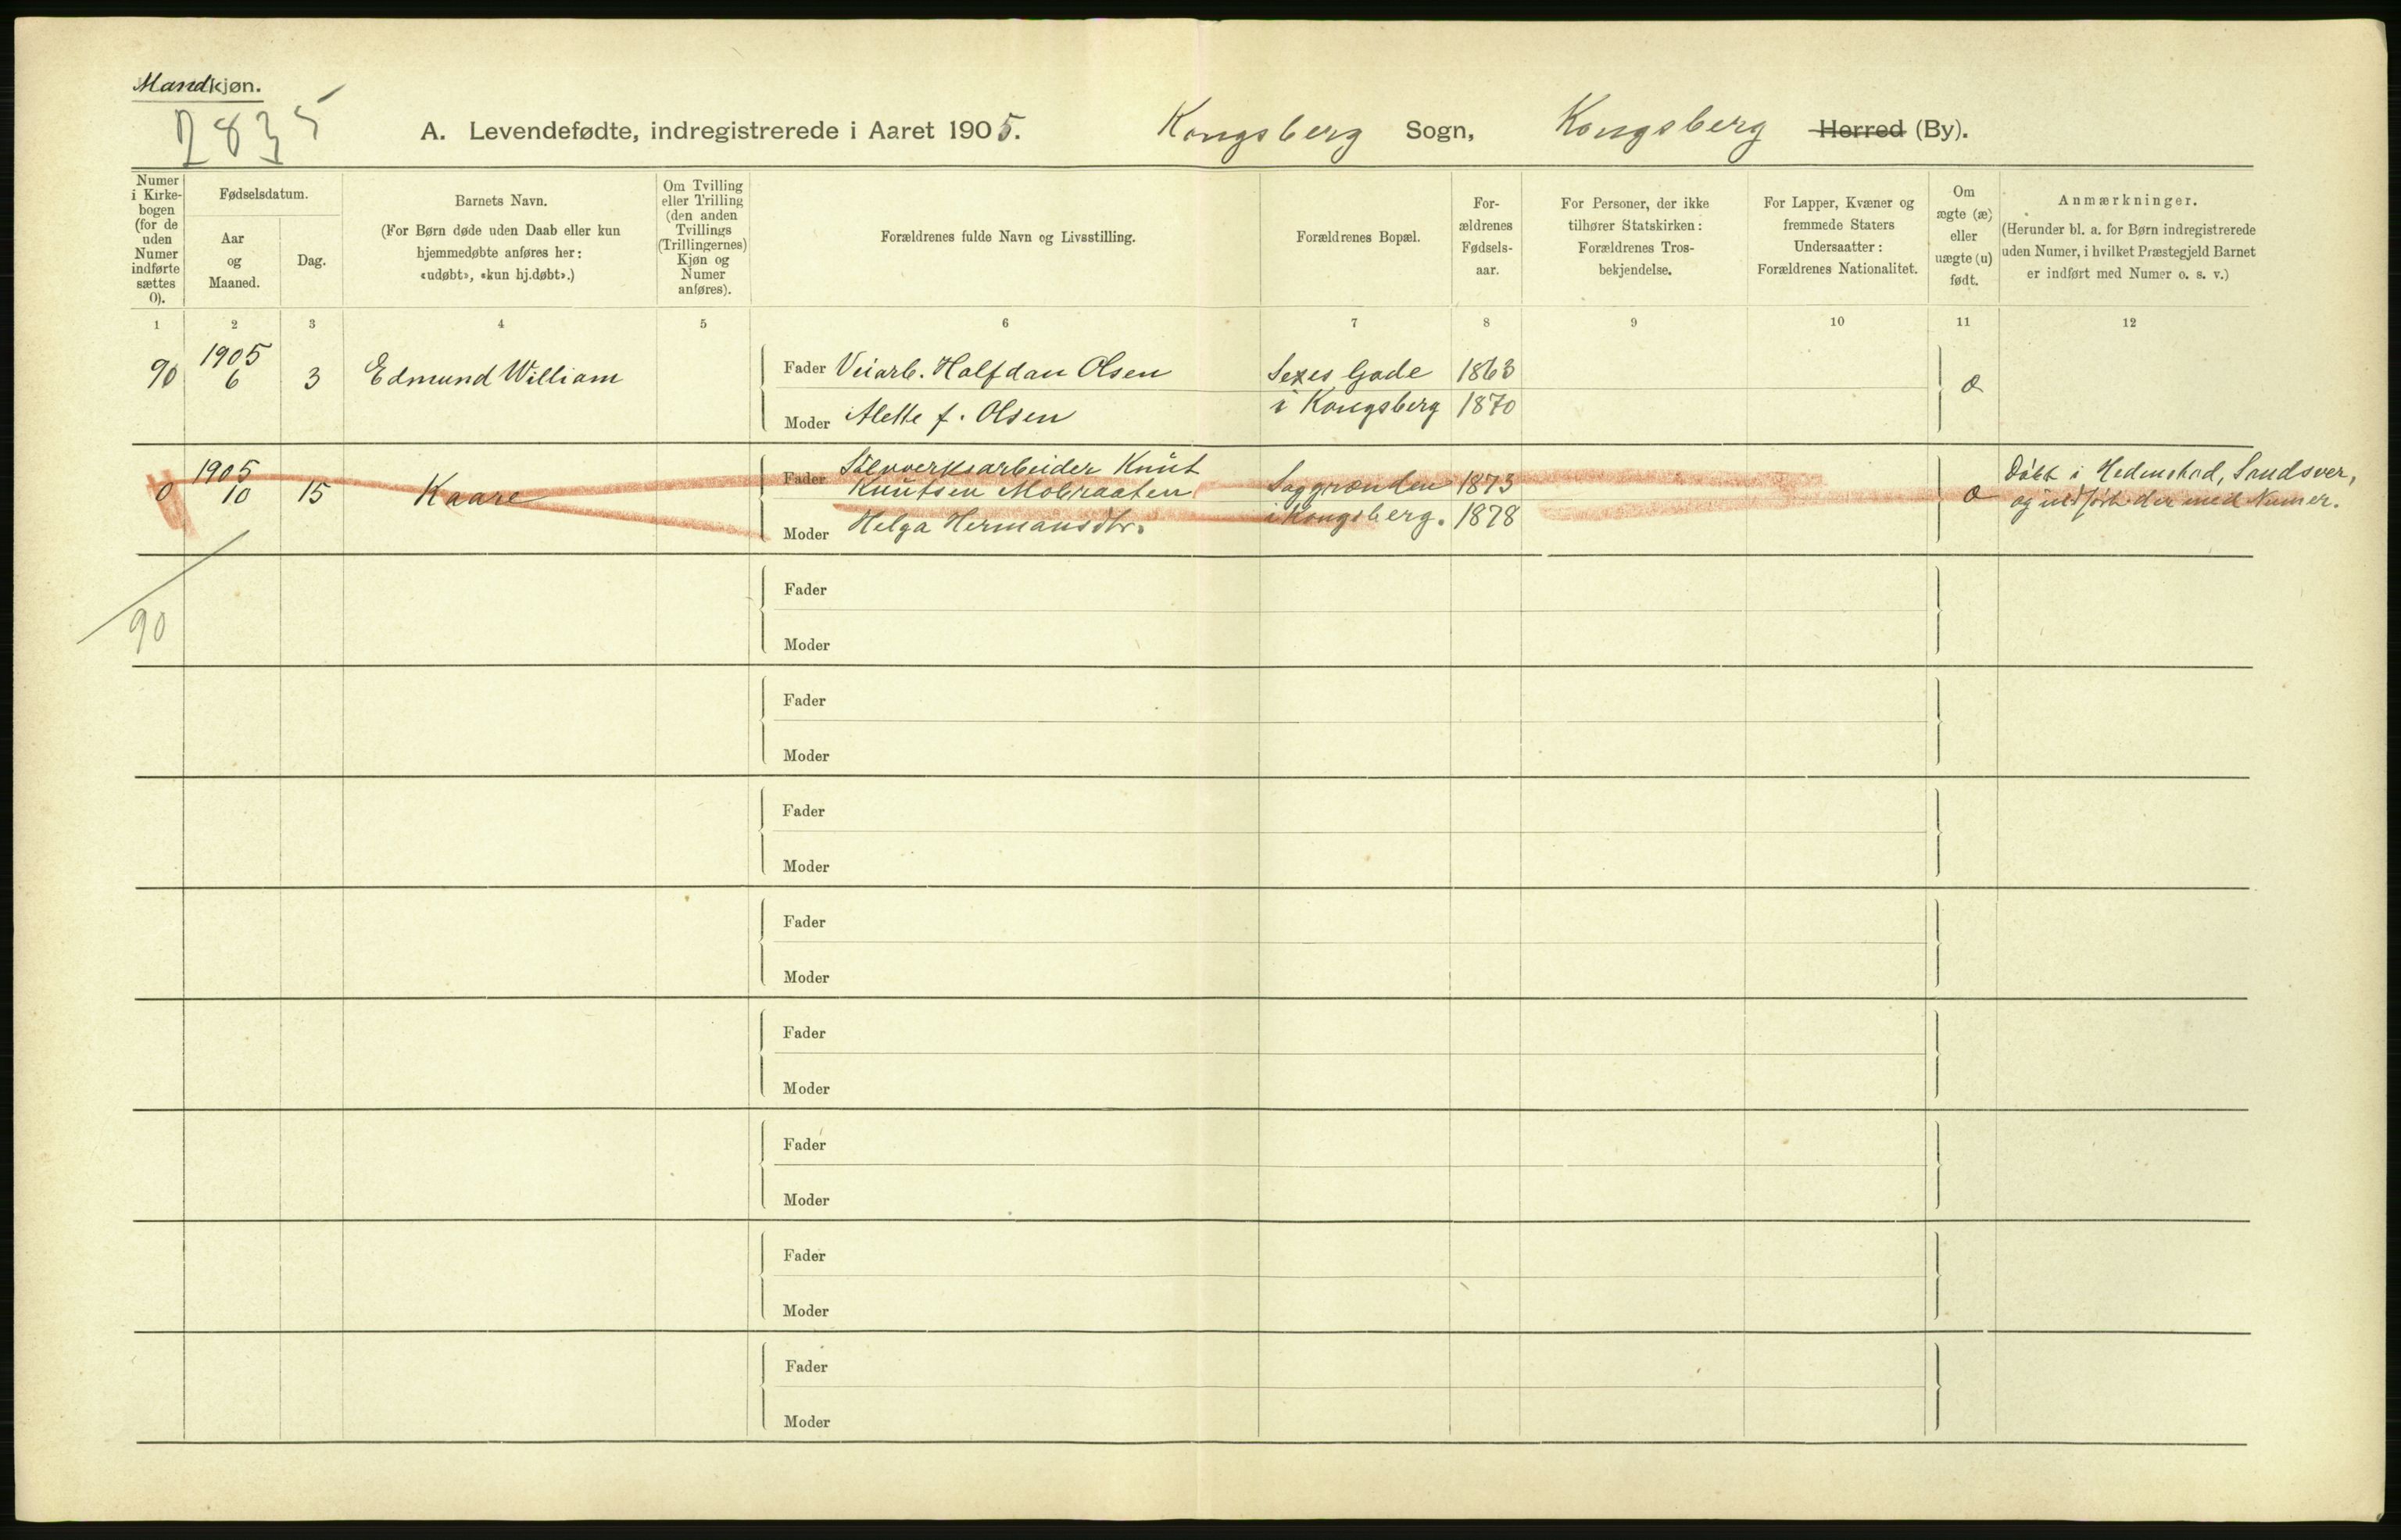 Mandkjøn.
2835
A. Levendefødte, indregistrerede i Aaret 1905. Kongsberg Sogn, Kongsberg Herred (By).
Numer i Kirkebogen (for de uden Numer indførte sættes 0).
Fødselsdatum.
Aar og Maaned.
Dag.
Barnets Navn.
(For Børn døde uden Daab eller kun
hjemmedøbte anføres her:
«udøbt», «kun hj.døbt».)
Om Tvilling
eller Trilling
(den anden
Tvillings
(Trillingernes)
Kjøn og
Numer
anføres).
Forældrenes fulde Navn og Livsstilling.
Forældrenes Bopæl.
For-
ældrenes
Fødsels-
aar.
For Personer, der ikke
tilhører Statskirken:
Forældrenes Tros-
bekjendelse.
For Lapper, Kvæner og
fremmede Staters
Undersaatter:
Forældrenes Nationalitet.
Om
ægte (æ)
eller
uægte (u)
født.
Anmærkninger.
(Herunder bl. a. for Børn indregistrerede
uden Numer, i hvilket Præstegjeld Barnet
er indført med Numer o. s. v.)
1 2 3 4 5 6 7 8 9 10 11 12
1905
90 6 3 Edmund William Fader Veiarb. Halfdan Olsen Sexes Gade 1863 æ
Moder Alette f. Olsen i Kongsberg 1870
1905 Sølvverksarbeider Knut
0 10 15 Kaare Fader Knutsen Mobraaten Saggrænden 1873 æ Døbt i Hedenstad, Sandsver,
Moder Helga Hermansdtr. i Kongsberg. 1878 og indført der med Numer.
90
Fader
Moder
Fader
Moder
Fader
Moder
Fader
Moder
Fader
Moder
Fader
Moder
Fader
Moder
Fader
Moder